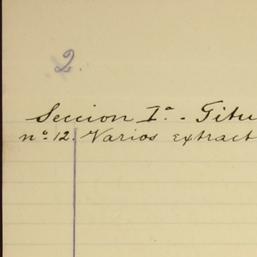 2.
Seccion 1ª. - Titu
nº 12. Varios extract